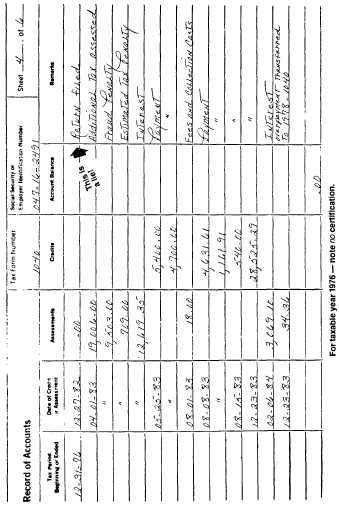 Record of Accounts
Tax Form Number
1040
Social Security or Employer Identification Number
047-16-2491
Sheet 4 of 6
Tax Period Beginning or Ended
Date of Credit or Assessment
Assessments
Credits
Account Balance
Remarks
12-31-76 12-27-82 .00 Return filed
This is a lie!
04-01-83 19,006.00 Additional tax assessed
" 9,503.00 Fraud Penalty
" 709.00 Estimated Tax Penalty
" 12,619.35 Interest
05-25-83 5,400.00 Payment
" 4,700.00 "
08-01-83 18.00 Fees and Collection Costs
08-08-83 4,631.61 Payment
" 1,161.91 "
08-15-83 546.00 "
12-23-83 28,525.29
02-06-84 3,069.10 Interest
12-23-83 34.36 overpayment transferred
to 1978-1040
.00
For taxable year 1976 — note no certification.